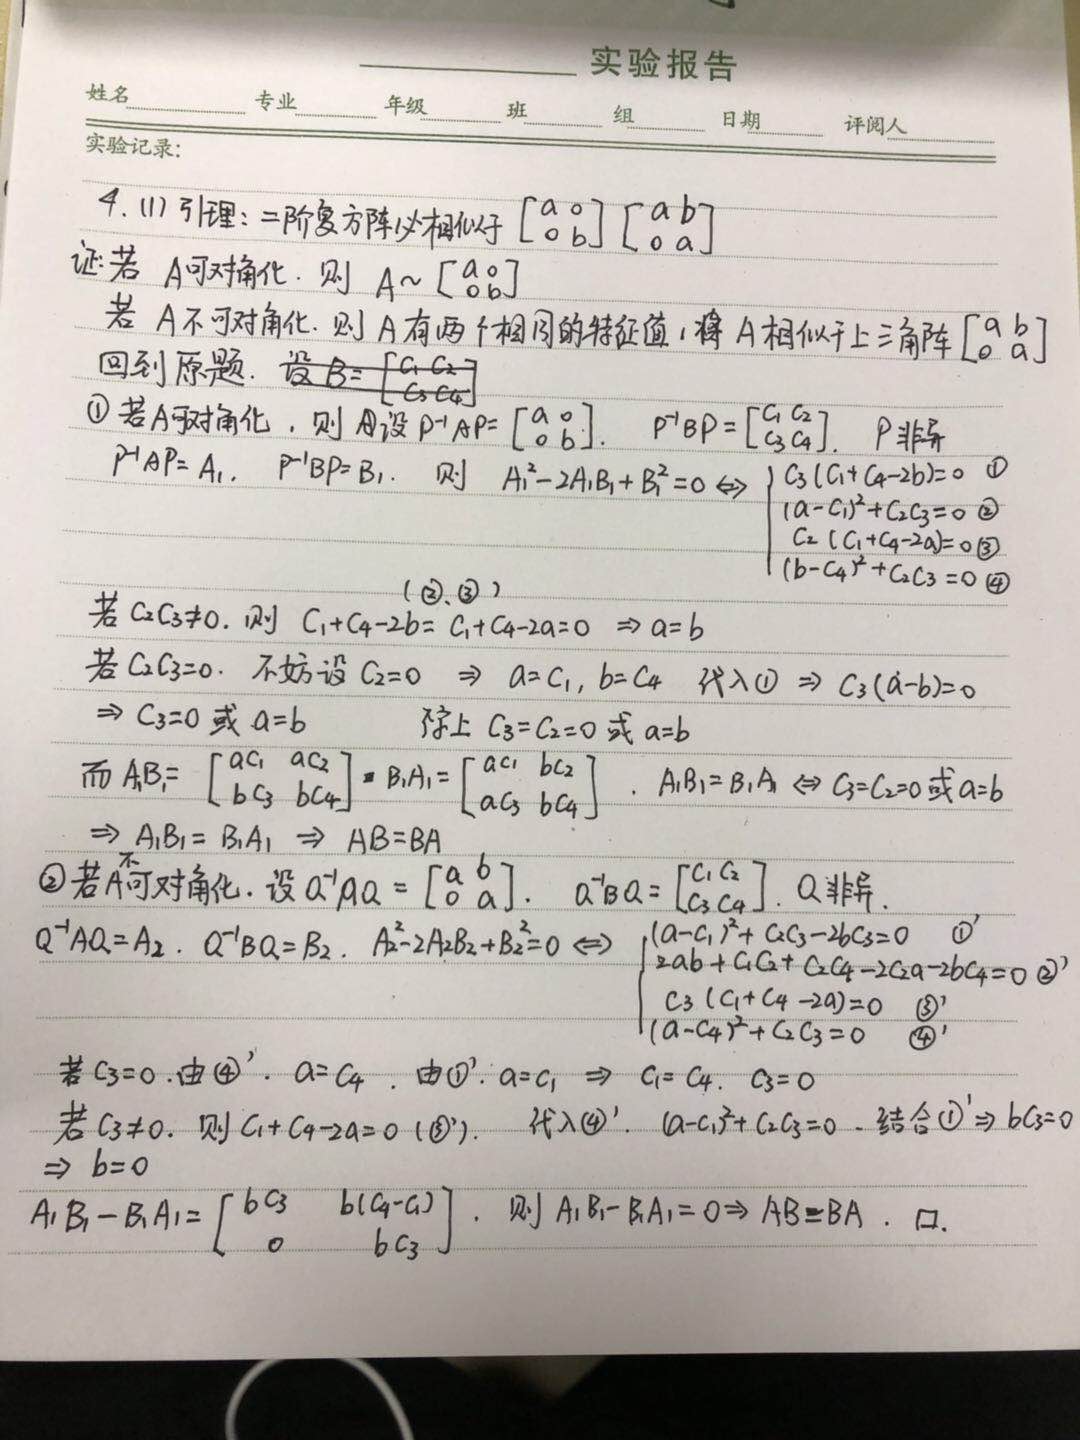 实验报告
姓名 专业 年级 班 组 日期 评阅人
实验记录:
4. (1) 引理: 二阶复方阵必相似于 [a 0; 0 b] [a b; 0 a]
证: 若 A可对角化. 则 A~[a 0; 0 b]
若 A不可对角化. 则 A有两个相同的特征值, 将 A相似于上三角阵 [a b; 0 a]
回到原题. 设B=[C₁ C₂; C₃ C₄]
① 若A可对角化, 则 设 P⁻¹AP=[a 0; 0 b]. P⁻¹BP=[C₁ C₂; C₃ C₄]. P非异
P⁻¹AP=A₁. P⁻¹BP=B₁. 则 A₁²-2A₁B₁+B₁²=0 ⇔ { C₃(C₁+C₄-2b)=0 ①
(a-C₁)²+C₂C₃=0 ②
C₂(C₁+C₄-2a)=0 ③
(b-C₄)²+C₂C₃=0 ④
(②、③)
若 C₂C₃≠0. 则 C₁+C₄-2b=C₁+C₄-2a=0 ⇒ a=b
若 C₂C₃=0. 不妨设 C₂=0 ⇒ a=C₁, b=C₄ 代入① ⇒ C₃(a-b)=0
⇒ C₃=0 或 a=b 综上 C₃=C₂=0 或 a=b
而 A₁B₁=[aC₁ aC₂; bC₃ bC₄] . B₁A₁=[aC₁ bC₂; aC₃ bC₄] . A₁B₁=B₁A₁ ⇔ C₃=C₂=0 或 a=b
⇒ A₁B₁=B₁A₁ ⇒ AB=BA
② 若A不可对角化. 设 Q⁻¹AQ=[a b; 0 a]. Q⁻¹BQ=[C₁ C₂; C₃ C₄]. Q非异.
Q⁻¹AQ=A₂. Q⁻¹BQ=B₂. A₂²-2A₂B₂+B₂²=0 ⇔ { (a-C₁)²+C₂C₃-2bC₃=0 ①'
2ab+C₁C₂+C₂C₄-2C₂a-2bC₄=0 ②'
C₃(C₁+C₄-2a)=0 ③'
(a-C₄)²+C₂C₃=0 ④'
若 C₃=0. 由④'. a=C₄. 由①'. a=C₁ ⇒ C₁=C₄. C₃=0
若 C₃≠0. 则 C₁+C₄-2a=0 (③'). 代入④'. (a-C₁)²+C₂C₃=0. 结合①' ⇒ bC₃=0
⇒ b=0
A₁B₁-B₁A₁=[bC₃ b(C₄-C₁); 0 bC₃]. 则 A₁B₁-B₁A₁=0 ⇒ AB=BA. □.